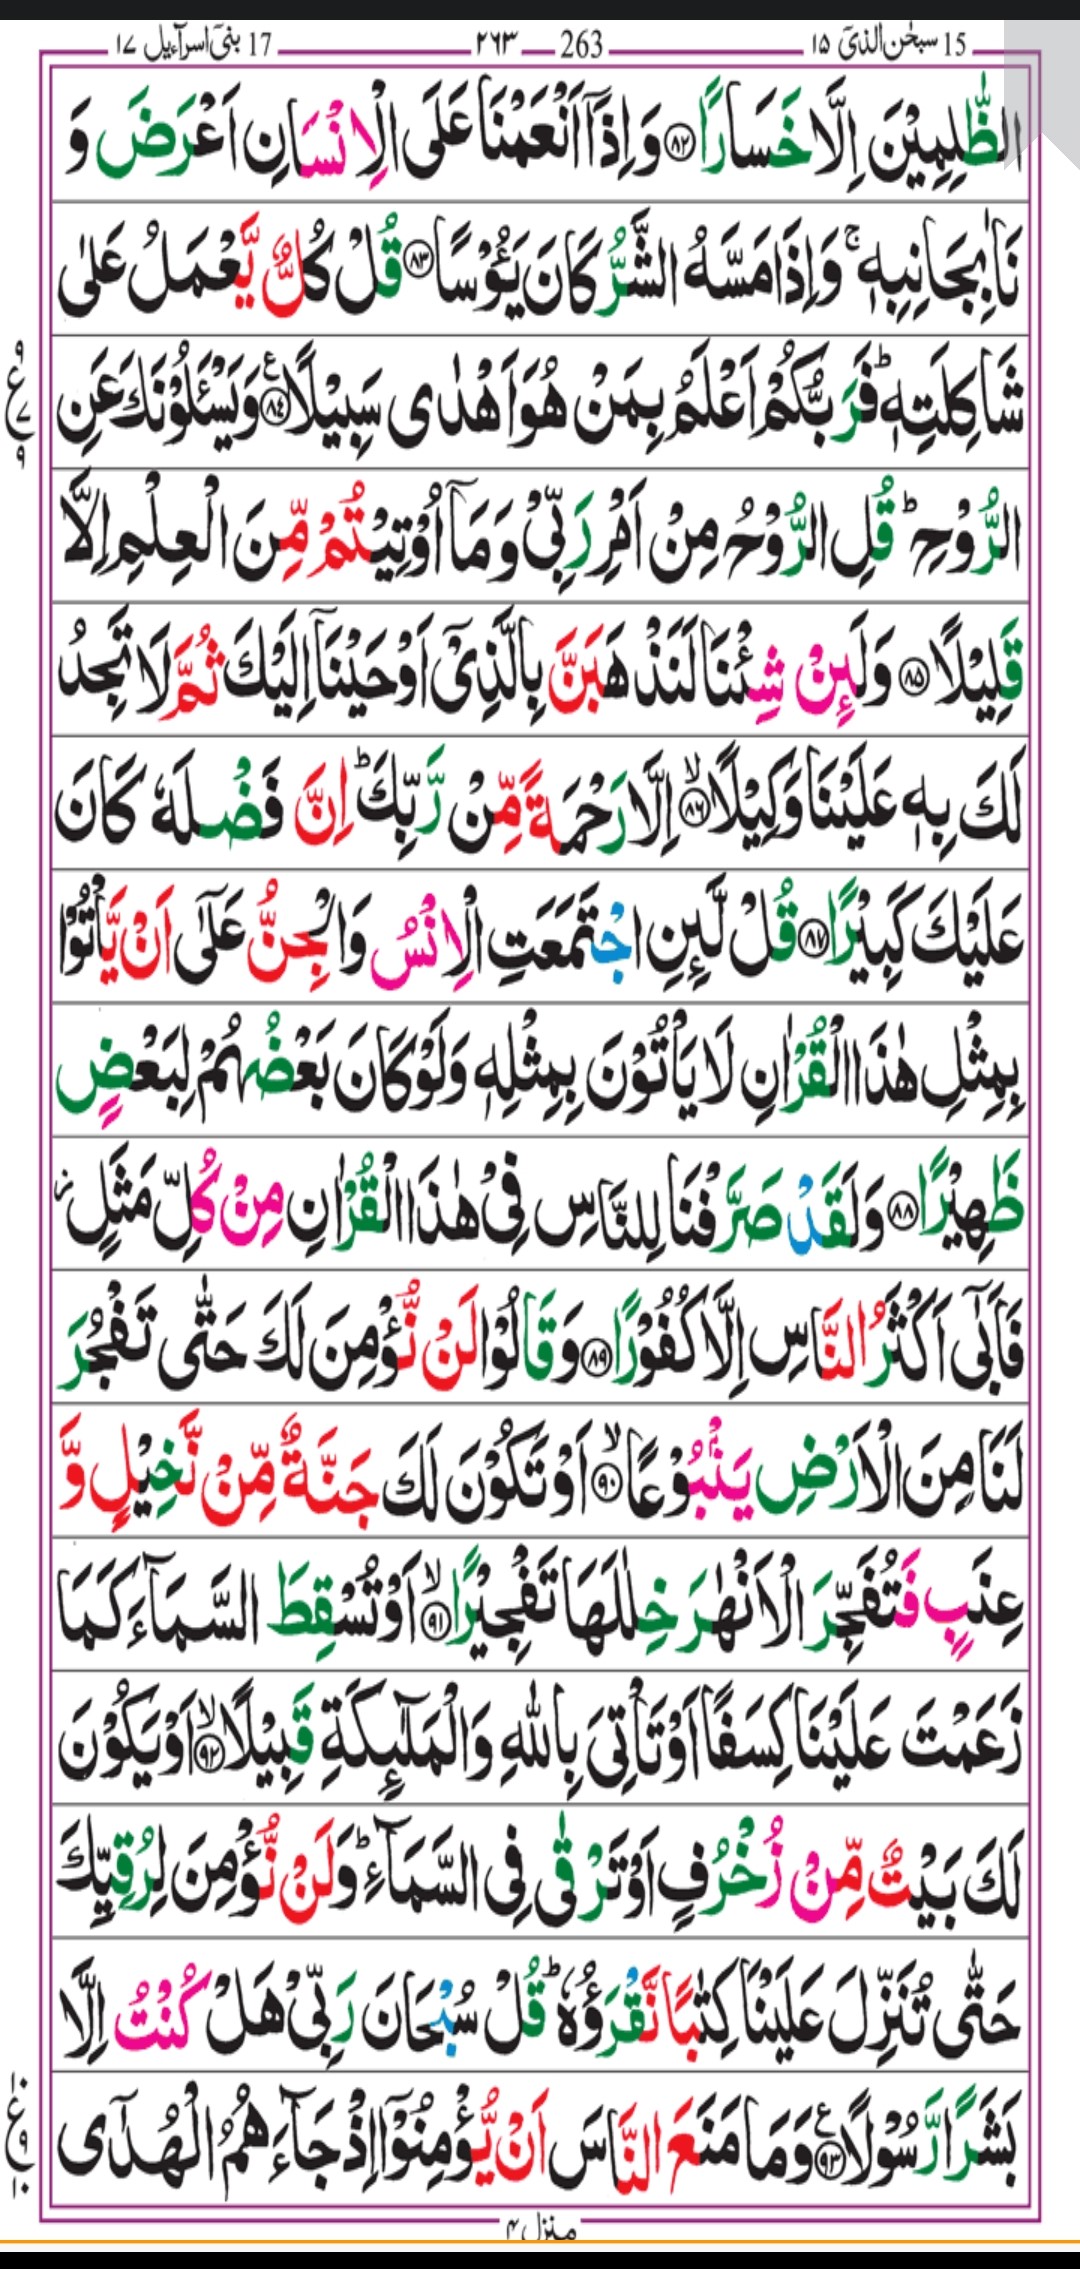 15 سبحٰن الذیٓ ۱۵ 263 ۲۶۳ 17 بنیٓ اسرآءیل ۱۷
الظّٰلِمِیْنَ اِلَّا خَسَارًا ﴿۸۲﴾ وَاِذَآ اَنْعَمْنَا عَلَی الْاِنْسَانِ اَعْرَضَ وَ
نَاٰ بِجَانِبِهٖ ۚ وَاِذَا مَسَّهُ الشَّرُّ كَانَ یَـُٔوْسًا ﴿۸۳﴾ قُلْ كُلٌّ یَّعْمَلُ عَلٰی
شَاكِلَتِهٖ ؕ فَرَبُّكُمْ اَعْلَمُ بِمَنْ هُوَ اَهْدٰی سَبِیْلًا ﴿۸۴﴾ ع وَیَسْـَٔلُوْنَكَ عَنِ
۹ ع ۷ ۹
الرُّوْحِ ؕ قُلِ الرُّوْحُ مِنْ اَمْرِ رَبِّیْ وَمَآ اُوْتِیْتُمْ مِّنَ الْعِلْمِ اِلَّا
قَلِیْلًا ﴿۸۵﴾ وَلَىِٕنْ شِئْنَا لَنَذْهَبَنَّ بِالَّذِیْۤ اَوْحَیْنَاۤ اِلَیْكَ ثُمَّ لَا تَجِدُ
لَكَ بِهٖ عَلَیْنَا وَكِیْلًا ﴿۸۶﴾ ۙ اِلَّا رَحْمَةً مِّنْ رَّبِّكَ ؕ اِنَّ فَضْلَهٗ كَانَ
عَلَیْكَ كَبِیْرًا ﴿۸۷﴾ قُلْ لَّىِٕنِ اجْتَمَعَتِ الْاِنْسُ وَالْجِنُّ عَلٰۤی اَنْ یَّاْتُوْا
بِمِثْلِ هٰذَا الْقُرْاٰنِ لَا یَاْتُوْنَ بِمِثْلِهٖ وَلَوْ كَانَ بَعْضُهُمْ لِبَعْضٍ
ظَهِیْرًا ﴿۸۸﴾ وَلَقَدْ صَرَّفْنَا لِلنَّاسِ فِیْ هٰذَا الْقُرْاٰنِ مِنْ كُلِّ مَثَلٍ ؗ
فَاَبٰۤی اَكْثَرُ النَّاسِ اِلَّا كُفُوْرًا ﴿۸۹﴾ وَقَالُوْا لَنْ نُّؤْمِنَ لَكَ حَتّٰی تَفْجُرَ
لَنَا مِنَ الْاَرْضِ یَنْۢبُوْعًا ﴿۹۰﴾ ۙ اَوْ تَكُوْنَ لَكَ جَنَّةٌ مِّنْ نَّخِیْلٍ وَّ
عِنَبٍ فَتُفَجِّرَ الْاَنْهٰرَ خِلٰلَهَا تَفْجِیْرًا ﴿۹۱﴾ ۙ اَوْ تُسْقِطَ السَّمَآءَ كَمَا
زَعَمْتَ عَلَیْنَا كِسَفًا اَوْ تَاْتِیَ بِاللّٰهِ وَالْمَلٰٓىِٕكَةِ قَبِیْلًا ﴿۹۲﴾ ۙ اَوْ یَكُوْنَ
لَكَ بَیْتٌ مِّنْ زُخْرُفٍ اَوْ تَرْقٰی فِی السَّمَآءِ ؕ وَلَنْ نُّؤْمِنَ لِرُقِیِّكَ
حَتّٰی تُنَزِّلَ عَلَیْنَا كِتٰبًا نَّقْرَؤُهٗ ؕ قُلْ سُبْحَانَ رَبِّیْ هَلْ كُنْتُ اِلَّا
بَشَرًا رَّسُوْلًا ﴿۹۳﴾ ع وَمَا مَنَعَ النَّاسَ اَنْ یُّؤْمِنُوْۤا اِذْ جَآءَهُمُ الْهُدٰۤی
۱۰ ع ۹ ۱۰
منزل ۴